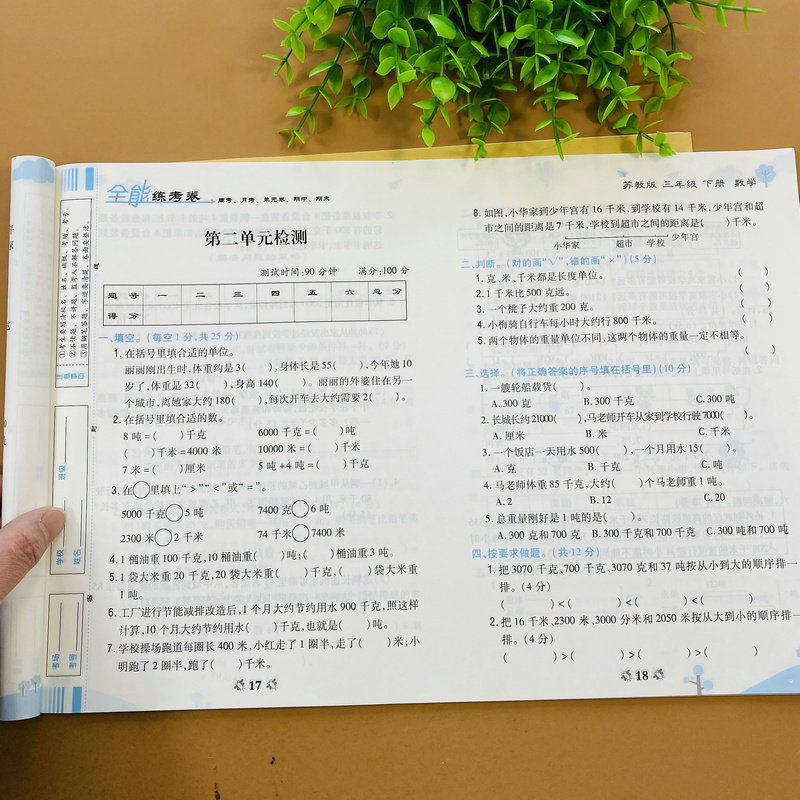 全能练考卷 周考、月考、单元卷、期中、期末
苏教版 三年级 下册 数学
注意事项
①考生要写清校名、姓名、班级、考场、考号。
②不读题、不讲题、监考人不解答问题。
③用钢笔答题、字迹要清楚、卷面要整洁。
班级
学校
姓名
考场
考号
第二单元检测
测试时间:90 分钟 满分:100 分
题号 一 二 三 四 五 六 总分
得分
一、填空。(每空 1 分,共 25 分)
1. 在括号里填合适的单位。
丽丽刚出生时,体重约是 3( ),身长是 55( ),今年她 10
岁了,体重是 32( ),身高 140( )。丽丽的外婆住在另一
个城市,离她家大约 180( ),每次开车去大约需要 2( )。
2. 在括号里填合适的数。
8 吨=( )千克 6000 千克=( )吨
( )千米=4000 米 10000 米=( )千米
7 米=( )厘米 5 吨+4 吨=( )千克
3. 在○里填上“>”“<”或“=”。
5000 千克○5 吨 7400 克○6 吨
2300 米○2 千米 74 千米○7400 米
4. 1 桶油重 100 千克,10 桶油重( )吨;( )桶油重 3 吨。
5. 1 袋大米重 20 千克,20 袋大米重( )千克,( )袋大米重
1 吨。
6. 工厂进行节能减排改造后,1 个月大约节约用水 900 千克,照这样
计算,10 个月大约节约用水( )千克,也就是( )吨。
7. 学校操场跑道每圈长 400 米,小红走了 1 圈半,走了( )米;小
明跑了 2 圈半,跑了( )千米。
17
8. 如图,小华家到少年宫有 16 千米,到学校有 14 千米,少年宫和超
市之间的距离是 7 千米,学校到超市之间的距离是( )千米。
小华家 超市 学校 少年宫
二、判断。(对的画“√”,错的画“×”)(5 分)
1. 克、米、千米都是长度单位。 ( )
2. 1 千米比 500 克远。 ( )
3. 一个桃子大约重 200 克。 ( )
4. 小梅骑自行车每小时大约行 800 千米。 ( )
5. 两个物体的重量单位不同,这两个物体的重量一定不相等。
( )
三、选择。(将正确答案的序号填在括号里)(10 分)
1. 一艘轮船载货( )。
A. 300 克 B. 300 千克 C. 300 吨
2. 长城长约 21000( ),马老师开车从家到学校行驶 7000( )。
A. 厘米 B. 米 C. 千米
3. 一个饭店一天用水 500( ),一个月用水 15( )。
A. 克 B. 千克 C. 吨
4. 马老师体重 85 千克,大约( )个马老师重 1 吨。
A. 2 B. 12 C. 20
5. 总重量刚好是 1 吨的是( )。
A. 300 克和 700 克 B. 300 千克和 700 千克 C. 300 吨和 700 吨
四、按要求做题。(共 12 分)
1. 把 3070 千克、700 千克、3070 克和 37 吨按从小到大的顺序排一
排。(4 分)
( )<( )<( )<( )
2. 把 16 千米、2300 米、3000 分米和 2050 米按从大到小的顺序排一
排。(4 分)
( )>( )>( )>( )
18